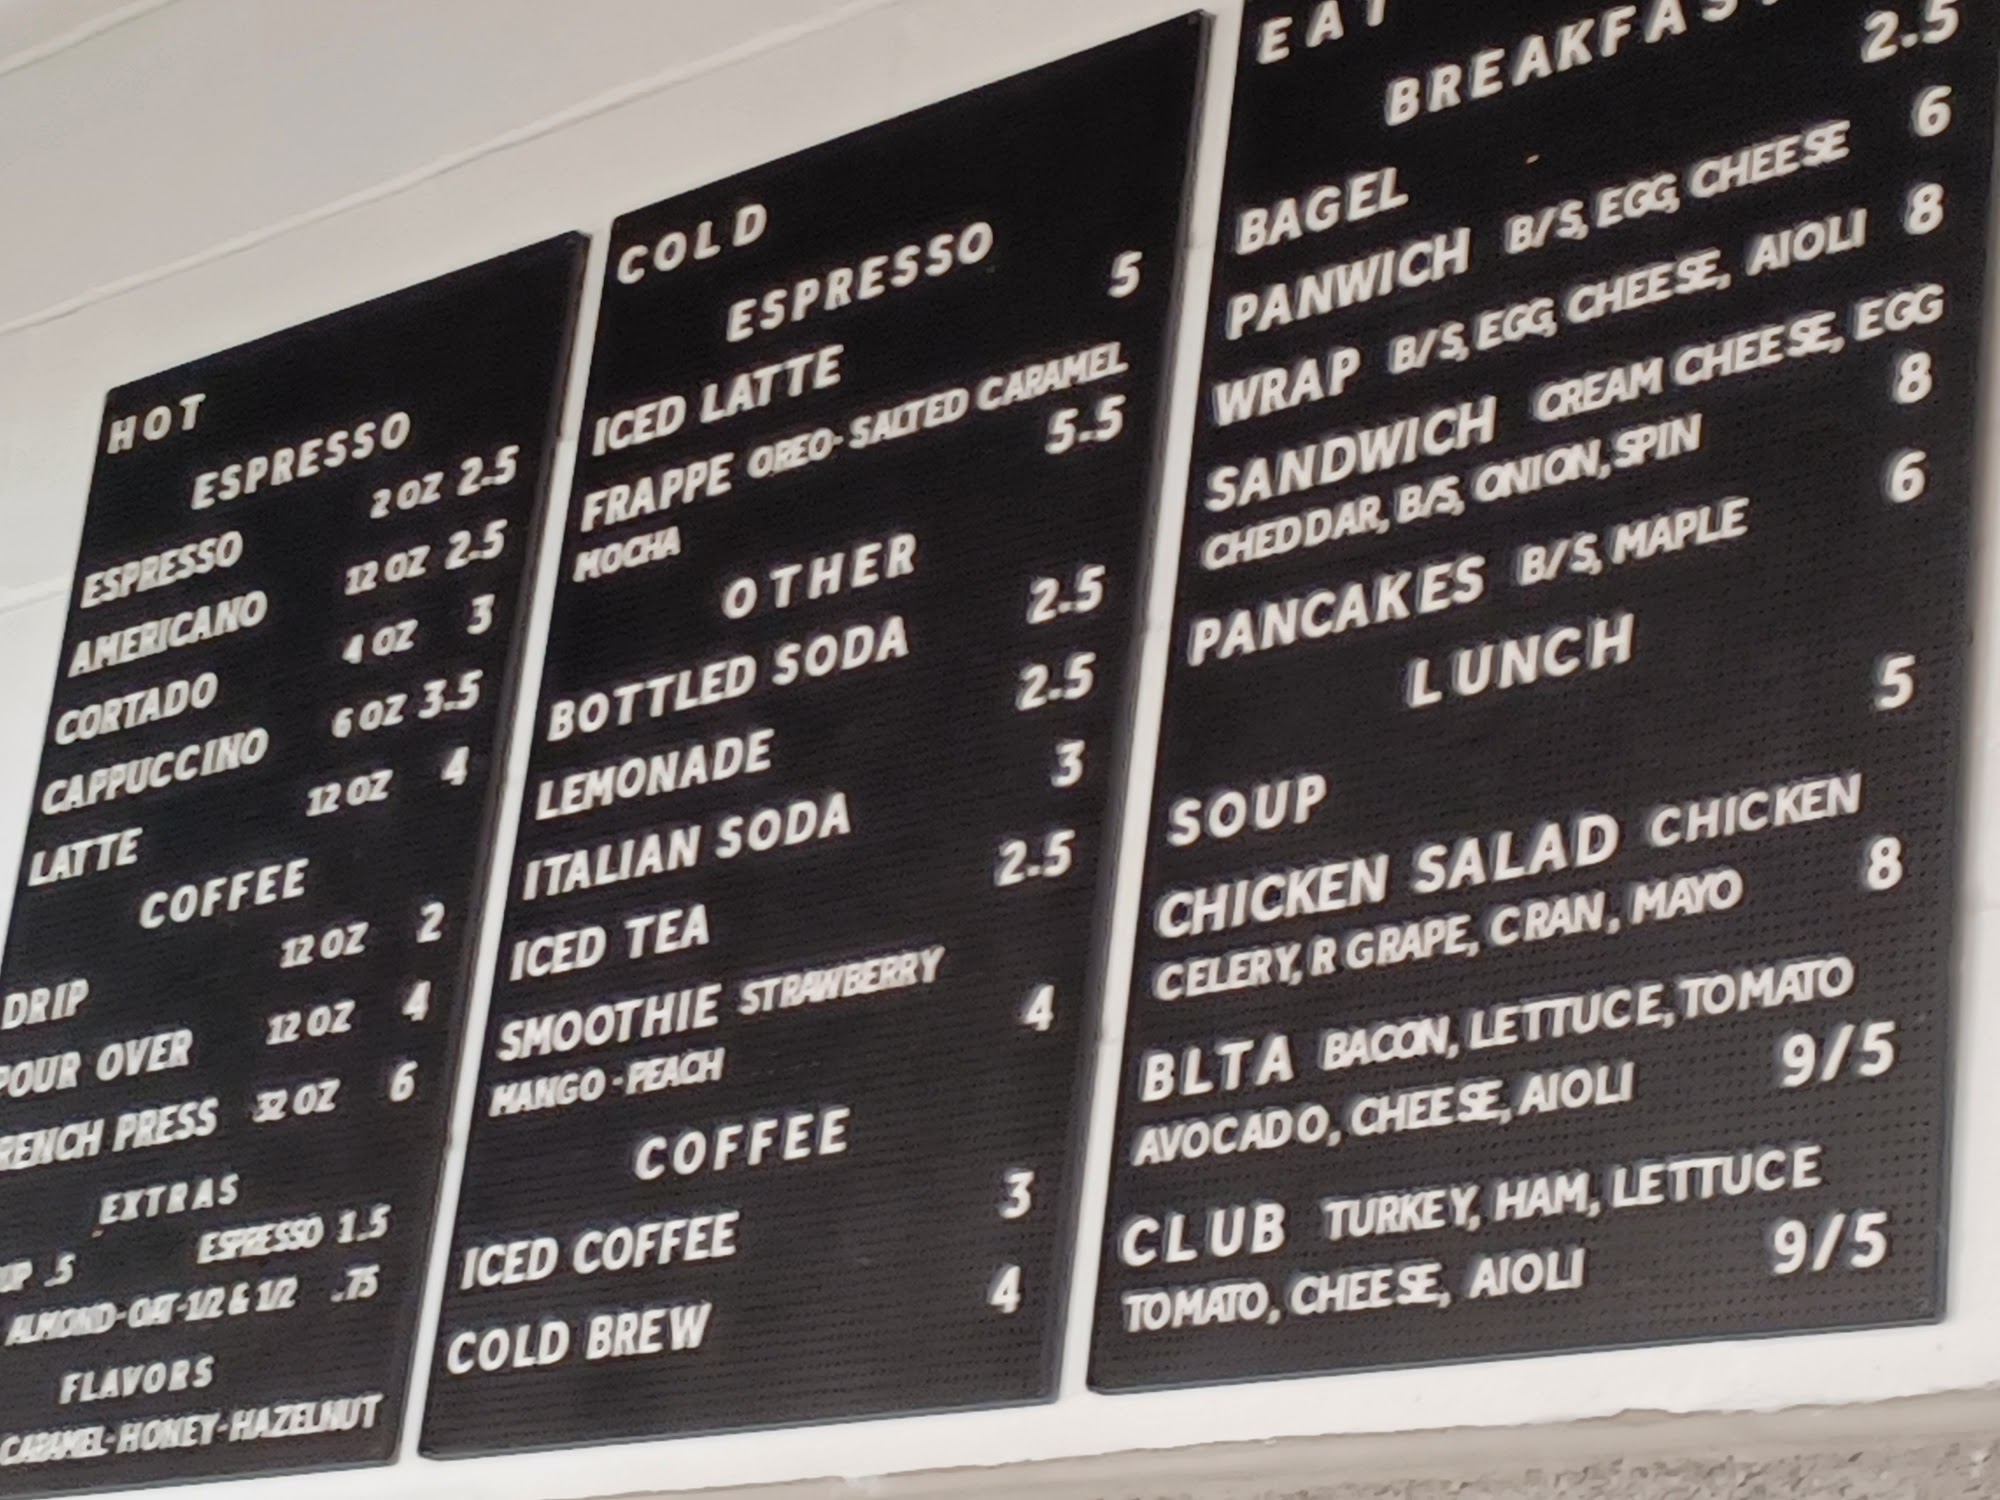 HOT
ESPRESSO
ESPRESSO 2 OZ 2.5
AMERICANO 12 OZ 2.5
CORTADO 4 OZ 3
CAPPUCCINO 6 OZ 3.5
LATTE 12 OZ 4
COFFEE
DRIP 12 OZ 2
POUR OVER 12 OZ 4
RENCH PRESS 32 OZ 6
EXTRAS
UP .5 ESPRESSO 1.5
ALMOND-OAT-1/2 & 1/2 .75
FLAVORS
CARAMEL-HONEY-HAZELNUT
COLD
ESPRESSO
ICED LATTE 5
FRAPPE OREO-SALTED CARAMEL
MOCHA 5.5
OTHER
BOTTLED SODA 2.5
LEMONADE 2.5
ITALIAN SODA 3
ICED TEA 2.5
SMOOTHIE STRAWBERRY
MANGO-PEACH 4
COFFEE
ICED COFFEE 3
COLD BREW 4
EAT
BREAKFAS
BAGEL 2.5
PANWICH B/S, EGG, CHEESE 6
WRAP B/S, EGG, CHEESE, AIOLI 8
SANDWICH CREAM CHEESE, EGG
CHEDDAR, B/S, ONION, SPIN 8
PANCAKES B/S, MAPLE 6
LUNCH
SOUP 5
CHICKEN SALAD CHICKEN
CELERY, R GRAPE, CRAN, MAYO 8
BLTA BACON, LETTUCE, TOMATO
AVOCADO, CHEESE, AIOLI 9/5
CLUB TURKEY, HAM, LETTUCE
TOMATO, CHEESE, AIOLI 9/5